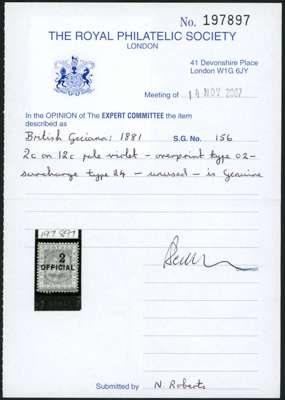 No. 197897
THE ROYAL PHILATELIC SOCIETY
LONDON
41 Devonshire Place
London W1G 6JY
Meeting of 14 NOV 2007
In the OPINION of The EXPERT COMMITTEE the item
described as
British Guiana: 1881 S.G. No. 156
2c on 12c pale violet - overprint type 02-
surcharge type 24 - unused - is genuine
197897
2
OFFICIAL
Submitted by N. Roberts